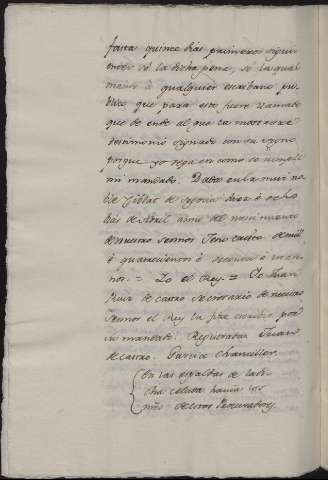 fasta quince dias primeros siguientes
so la dicha pena, so la qual
mando à qualquier escribano publico
que para esto fuere llamado
que de ende al que la mostrare
testimonio signado con su signo
porque yo sepa en como se cumple
mi mandado. Data en la mui noble
Cibdat de Segovia diez è ocho
dias de Abril año del nacimiento
de nuestro Señor Jesu Cristo de mill
è quatrocientos è sesenta è
nos. = Yo el Rey. = Yo Juan
Ruiz de Castro Secretario de nuestro
Señor el Rey la fice escribir por
su mandado. Registrada Juan
de Castro. Garcia Chanciller.
En las espaldas de la dicha
Cedula havia los
de unos Procuradores